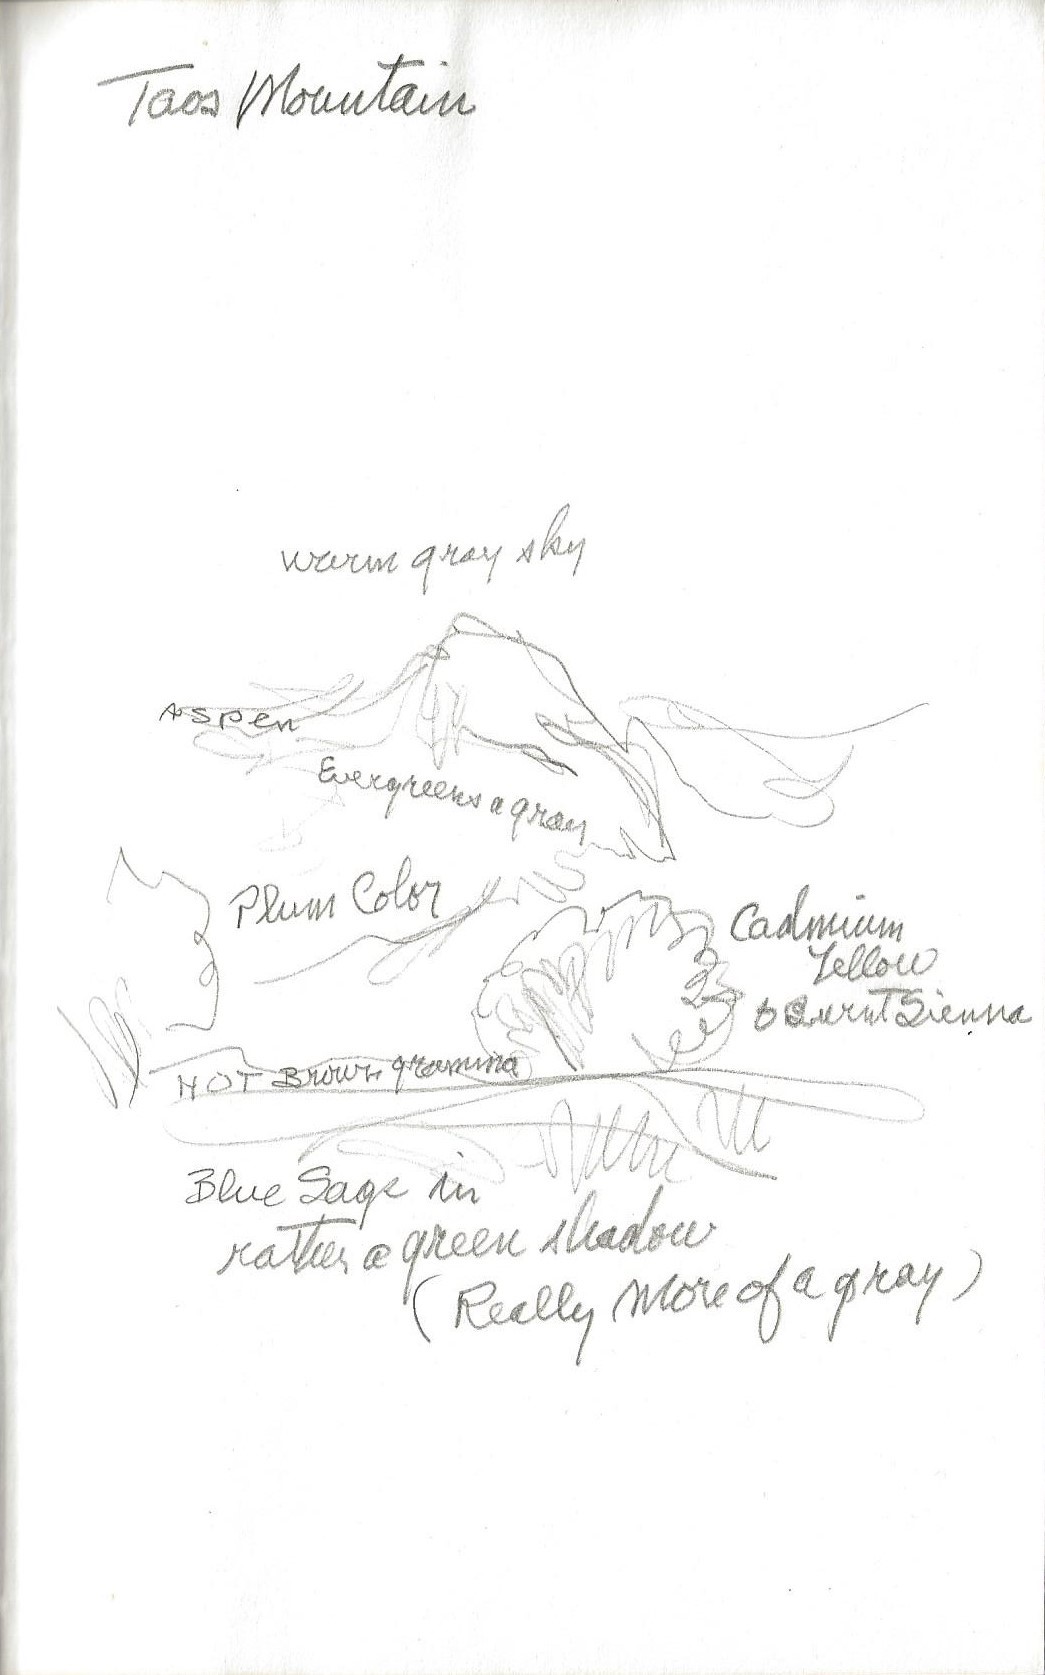 Taos Mountain
warm gray sky
Aspen
Evergreens a gray
Plum Color
Cadmium
Yellow
Burnt Sienna
HOT Brown gramma
Blue Sage in
rather a green shadow
(Really More of a gray)